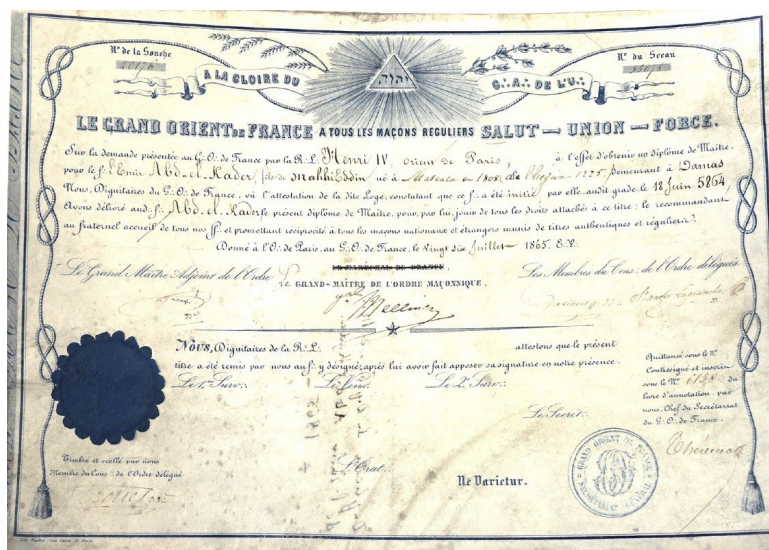 Nº de la Souche
Nº du Sceau
A LA GLOIRE DU
יהוה
G∴ A∴ DE L'U∴
LE GRAND ORIENT DE FRANCE A TOUS LES MAÇONS REGULIERS SALUT — UNION — FORCE.
Sur la demande présentée au G∴ O∴ de France par la R∴ L∴ Henri IV, orient de Paris, à l'effet d'obtenir un diplome de Maître,
pour le f∴ l'Emir Abd-el-Kader, fils de Mahhi Eddin né à Mascara en 1808 de l'hégire 1225, demeurant à Damas
Nous, Dignitaires du G∴ O∴ de France, vu l'attestation de la dite Loge, constatant que ce f∴ a été initié, par elle audit grade, le 18 Juin 5864,
Avons délivré aud∴ f∴ Abd-el-Kader le présent diplome de Maître, pour, par lui, jouir de tous les droits attachés à ce titre: le recommandant
au fraternel accueil de tous nos ff∴ et promettant réciprocité à tous les maçons nationaux et étrangers munis de titres authentiques et réguliers.
Donné à l'O∴ de Paris, au G∴ O∴ de France, le vingt six Juillet 1865. E∴ V∴
LE MARÉCHAL DE FRANCE,
Le Grand Maître Adjoint de l'Ordre
Le GRAND-MAÎTRE DE L'ORDRE MAÇONNIQUE.
Les Membres du Cons∴ de l'Ordre délégués.
Gal Mellinet
NOUS, Dignitaires de la R∴ L∴ attestons que le présent
titre a été remis par nous au f∴ y désigné, après lui avoir fait apposer sa signature en notre présence.
Le 1er Surv∴
Le Vén∴
Le 2e Surv∴
Le Secrét∴
Quittancé sous le Nº
Contresigné et inscrit
sous le Nº du
livre d'annotation par
nous, Chef du Secrétariat
du G∴ O∴ de France.
Thévenot
Timbré et scellé par nous
Membre du Cons∴ de l'Ordre délégué
L'Orat∴
Ne Varietur.
GRAND ORIENT DE FRANCE
SECRÉTARIAT GÉNÉRAL